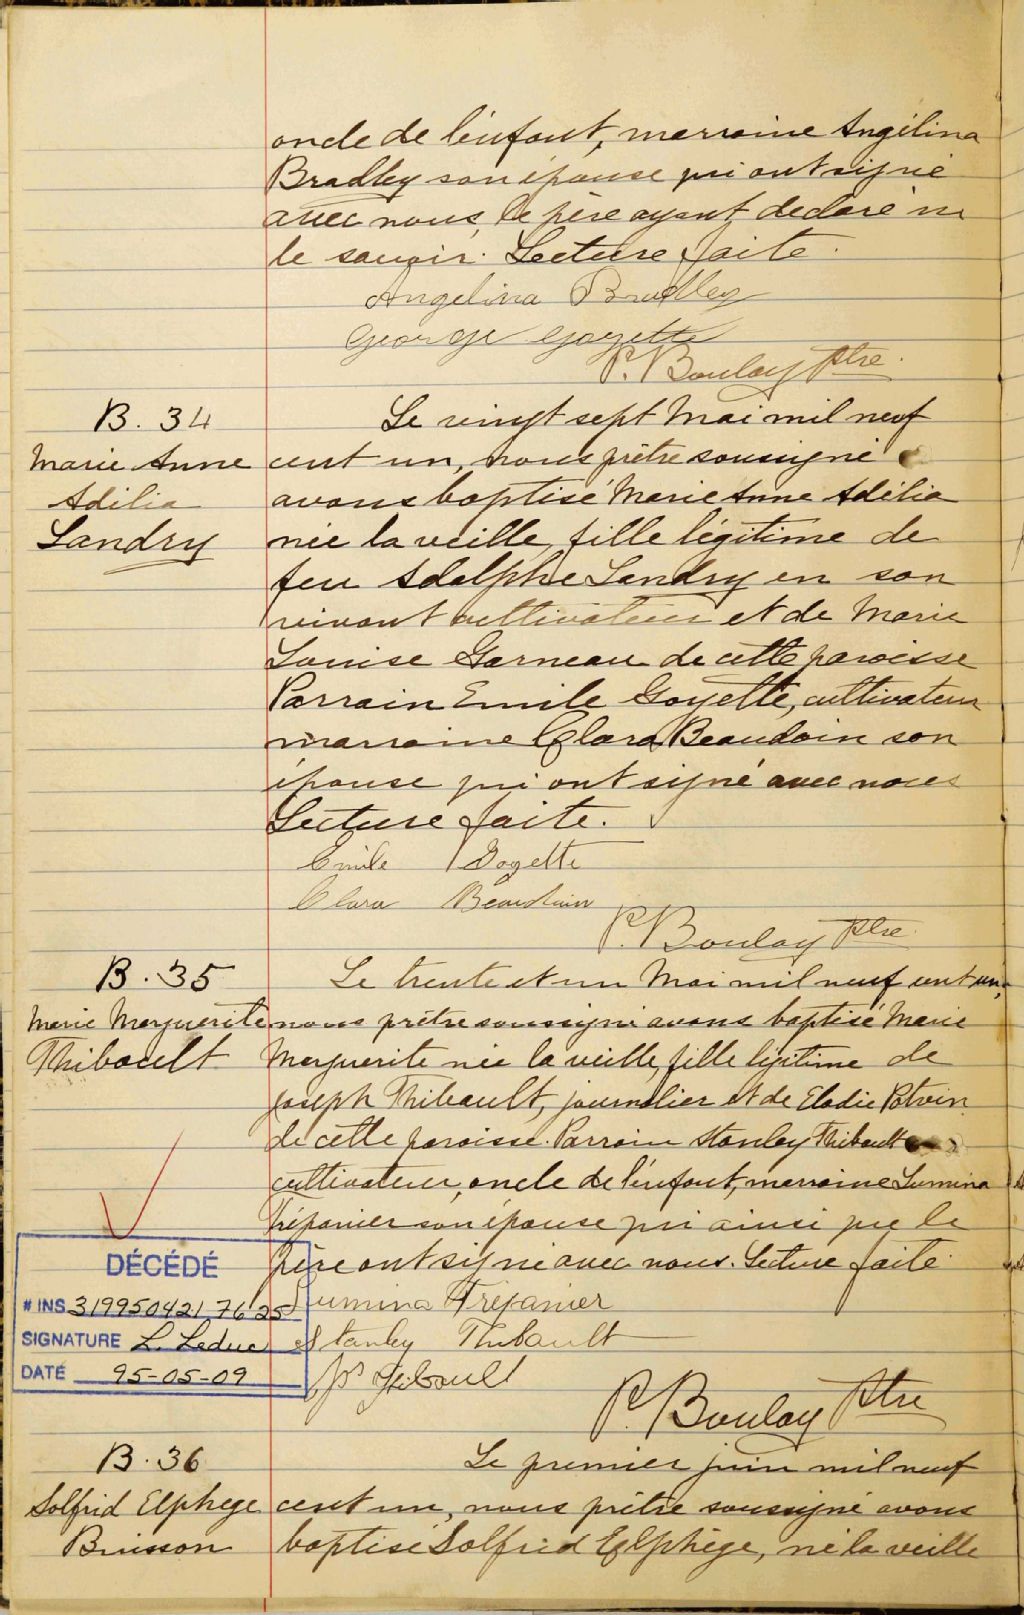 oncle de l'enfant, marraine Angélina
Bradley son épouse qui ont signé
avec nous, le père ayant déclaré ne
le savoir. Lecture faite.
Angelina Bradley
George Goyette
P. Boulay Ptre.
B. 34
Marie Anne
Adélia
Landry
Le vingt sept Mai mil neuf
cent un, nous prêtre soussigné
avons baptisé Marie Anne Adélia
née la veille, fille légitime de
feu Adolphe Landry en son
vivant cultivateur et de Marie
Louise Garneau de cette paroisse
Parrain Emile Goyette, cultivateur
marraine Clara Beaudoin son
épouse qui ont signé avec nous
Lecture faite.
Emile Goyette
Clara Beaudoin
P. Boulay Ptre.
B. 35
Marie Marguerite
Thibault
Le trente et un Mai mil neuf cent un,
nous prêtre soussigné avons baptisé Marie
Marguerite née la veille, fille légitime de
Joseph Thibault, journalier et de Elodie Potvin
de cette paroisse. Parrain Stanley Thibault
cultivateur, oncle de l'enfant, marraine Lumina
Trépanier son épouse qui ainsi que le
père ont signé avec nous. Lecture faite.
Lumina Trépanier
Stanley Thibault
Js Thibault
P. Boulay Ptre
DÉCÉDÉ
# INS. 319950421 76 25
SIGNATURE L. Leduc
DATE 95-05-09
B. 36
Solfrid Elphège
Buisson
Le premier juin mil neuf
cent un, nous prêtre soussigné avons
baptisé Solfrid Elphège, né la veille